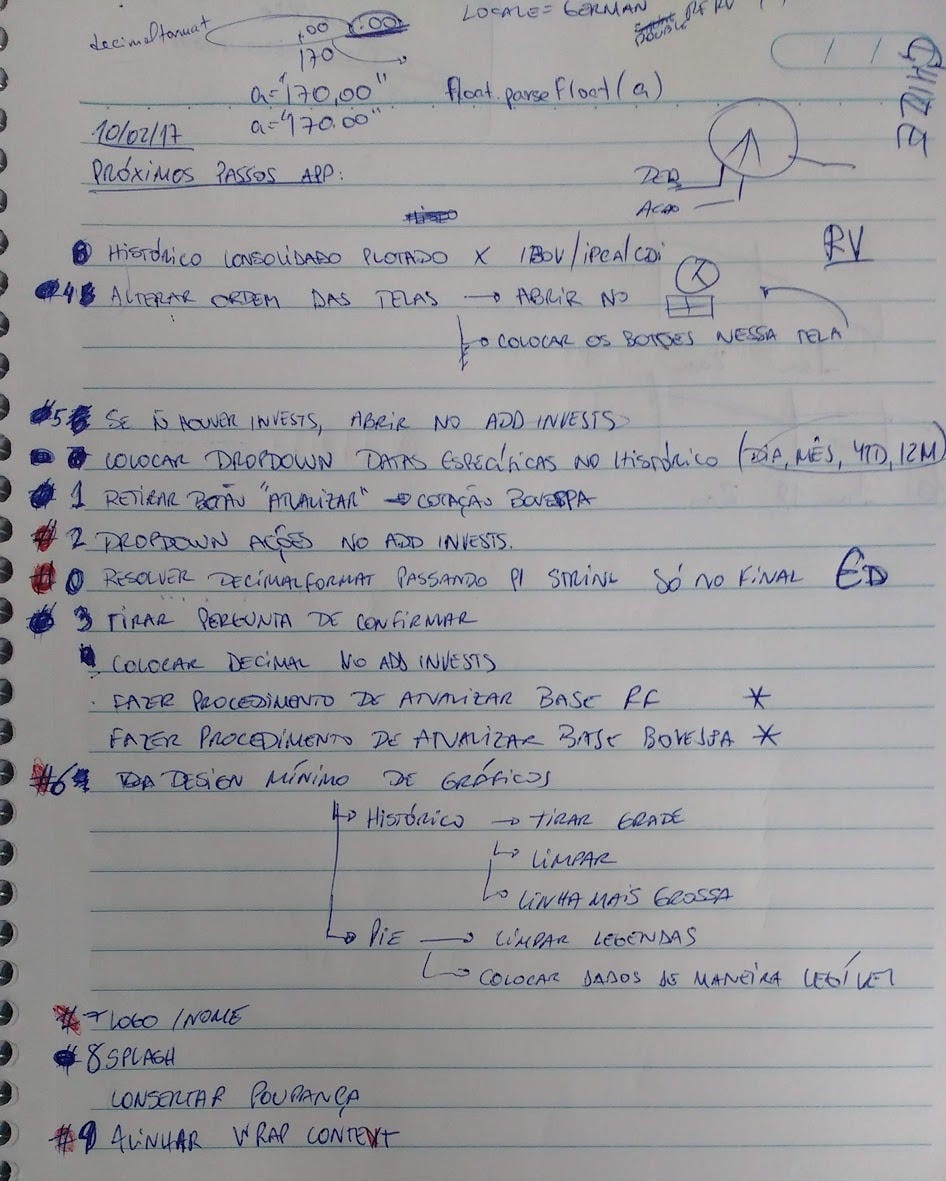 LOCALE = GERMAN
decimalformat ,00 .00
DOUBLE
170
a="170,00" float.parseFloat(a)
a="170.00"
10/02/17
PRÓXIMOS PASSOS APP:
AÇÃO
HISTÓRICO CONSOLIDADO PLOTADO X IBOV/IPCA/CDI
RV
#4 ALTERAR ORDEM DAS TELAS → ABRIR NO
↳ COLOCAR OS BOTÕES NESSA TELA
#5 SE Ñ HOUVER INVESTS, ABRIR NO ADD INVESTS
COLOCAR DROPDOWN DATAS ESPECÍFICAS NO HISTÓRICO (DIA, MÊS, YTD, 12M)
# 1 RETIRAR BOTÃO "ATUALIZAR" → COTAÇÃO BOVESPA
# 2 DROPDOWN AÇÕES NO ADD INVESTS.
# 0 RESOLVER DECIMALFORMAT PASSANDO P/ STRING SÓ NO FINAL
# 3 TIRAR PERGUNTA DE CONFIRMAR
COLOCAR DECIMAL NO ADD INVESTS
. FAZER PROCEDIMENTO DE ATUALIZAR BASE RF *
FAZER PROCEDIMENTO DE ATUALIZAR BASE BOVESPA *
#6 DESIGN MÍNIMO DE GRÁFICOS
↳ HISTÓRICO → TIRAR GRADE
↳ LIMPAR
↳ LINHA MAIS GROSSA
↳ PIE → LIMPAR LEGENDAS
↳ COLOCAR DADOS DE MANEIRA LEGÍVEL
# 7 LOGO / NOME
# 8 SPLASH
CONSERTAR POUPANÇA
#9 ALINHAR WRAP CONTENT